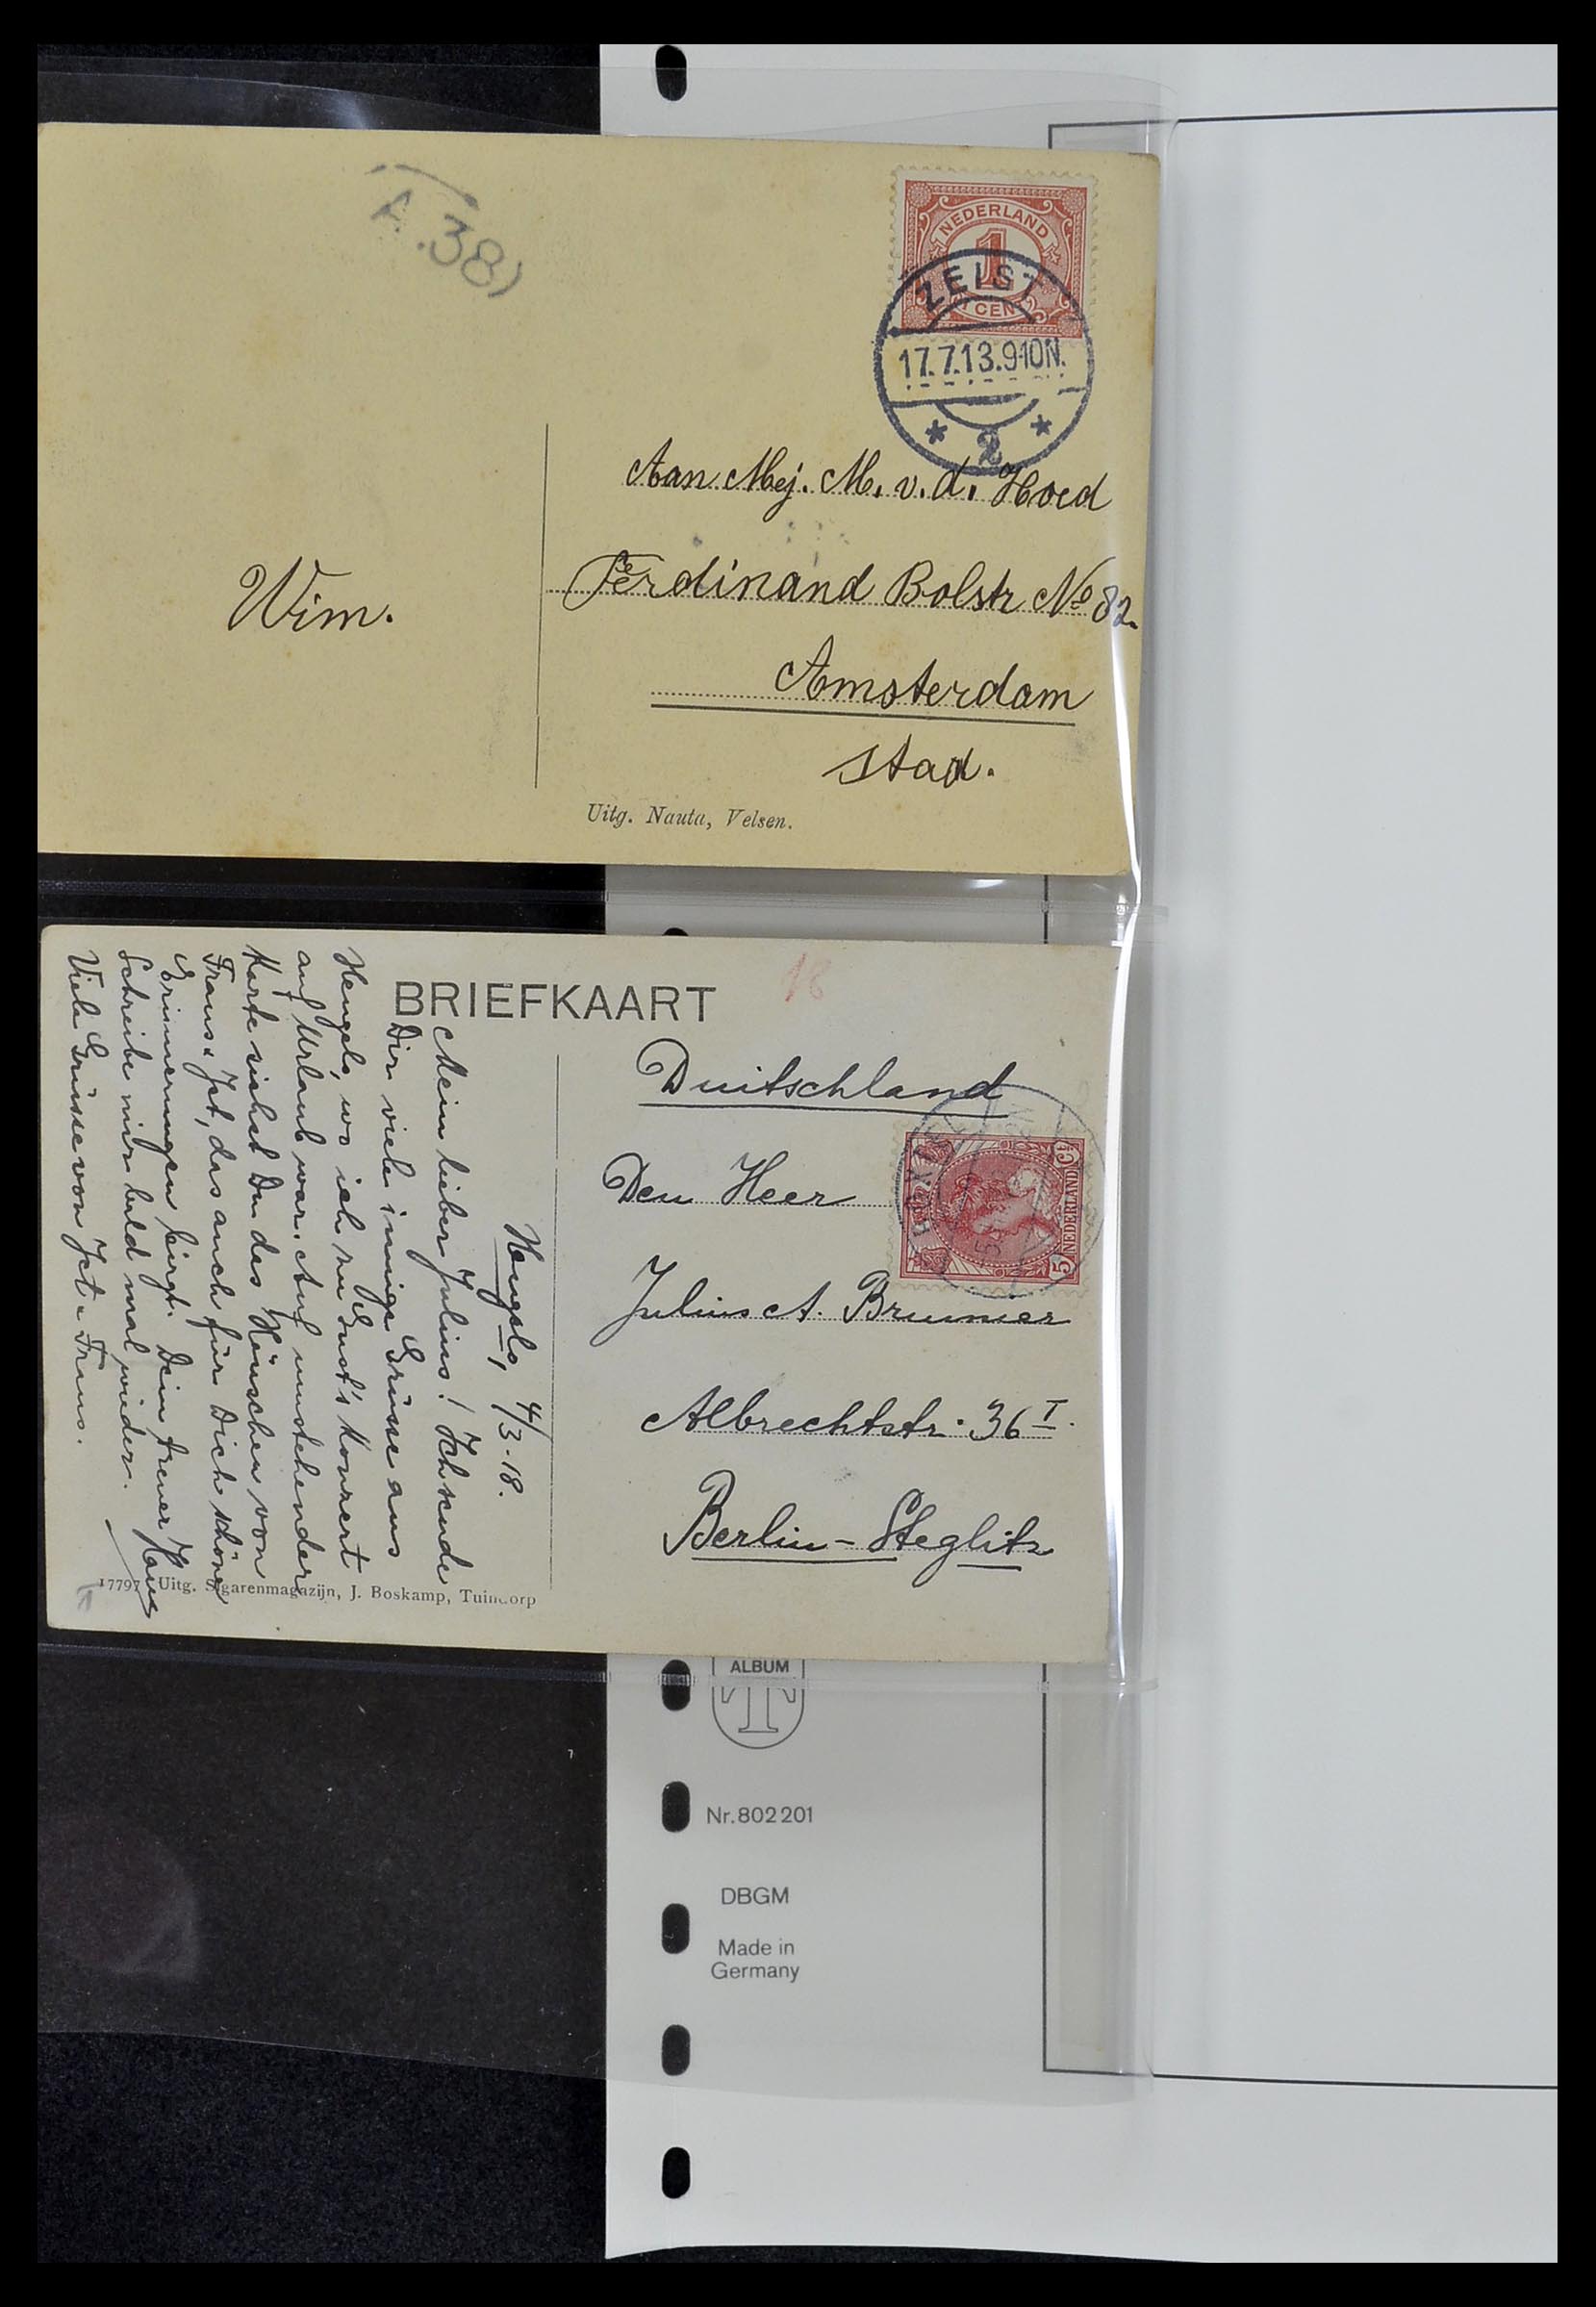 A.38)
NEDERLAND
1
CENT
ZEIST
17.7.13.9-10N.
* 2 *
Aan Mej. M. v. d. Hoed
Ferdinand Bolstr No 82.
Amsterdam
stad.
Wim.
Uitg. Nauta, Velsen.
18
BRIEFKAART
Duitschland
Den Heer
Julius A. Brummer
Albrechtstr. 36 I.
Berlin-Steglitz
5 NEDERLAND Ct
Hengelo, 4/3.18.
Mein lieber Julius! Ich sende
Dir viele innige Grüsse aus
Hengelo, wo ich zu Gust's Konzert
auf Urlaub war. Auf umstehender
Karte siehst Du das Häuschen von
Frans & Jet, das auch für Dich schöne
Erinnerungen birgt. Dein treuer Hans
Schreibe mir bald mal wieder.
Viele Grüsse von Jet & Frans.
17797 Uitg. Sigarenmagazijn, J. Boskamp, Tuindorp
ALBUM
T
Nr. 802 201
DBGM
Made in
Germany